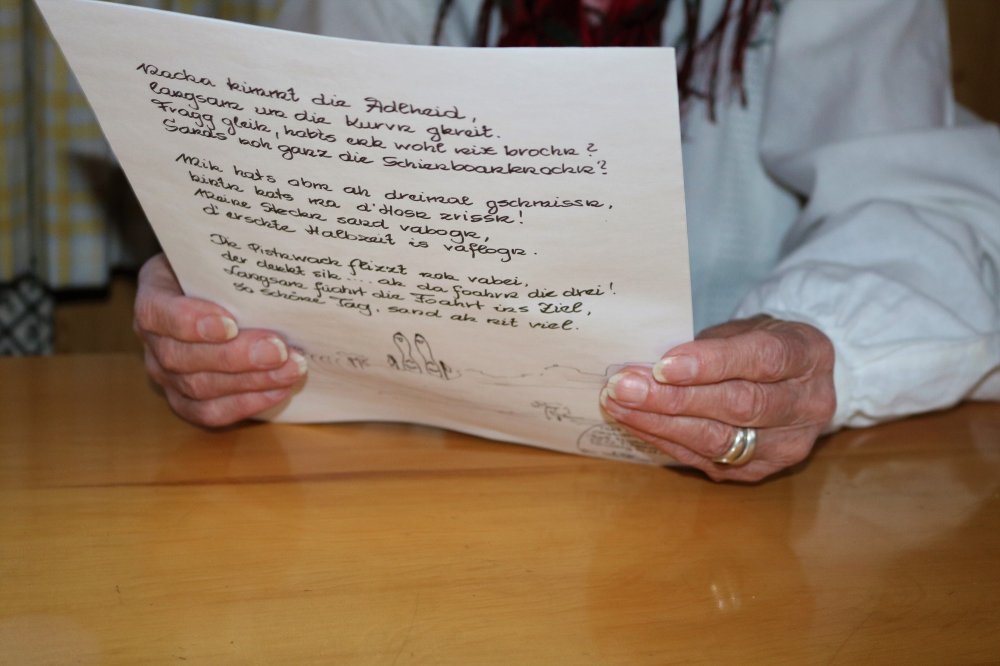 Nocha kimmt die Adlheid,
langsam um die Kurvn gkreit.
Fragg gleih, habts enk wohl nix brochn?
Sands noh ganz die Schienboanknochn?
Mih hats obm ah dreimal gschmissn,
hintn hats ma d'Hosn zrissn!
Meine Steckn sand vabogn,
d'erschte Halbzeit is vaflogn.
Die Pistnwach flizzt noh vabei,
der denkt sih... ah da foahrn die drei!
Langsam füahrt die Foahrt ins Ziel,
so schöne Tag, sand ah nit viel.